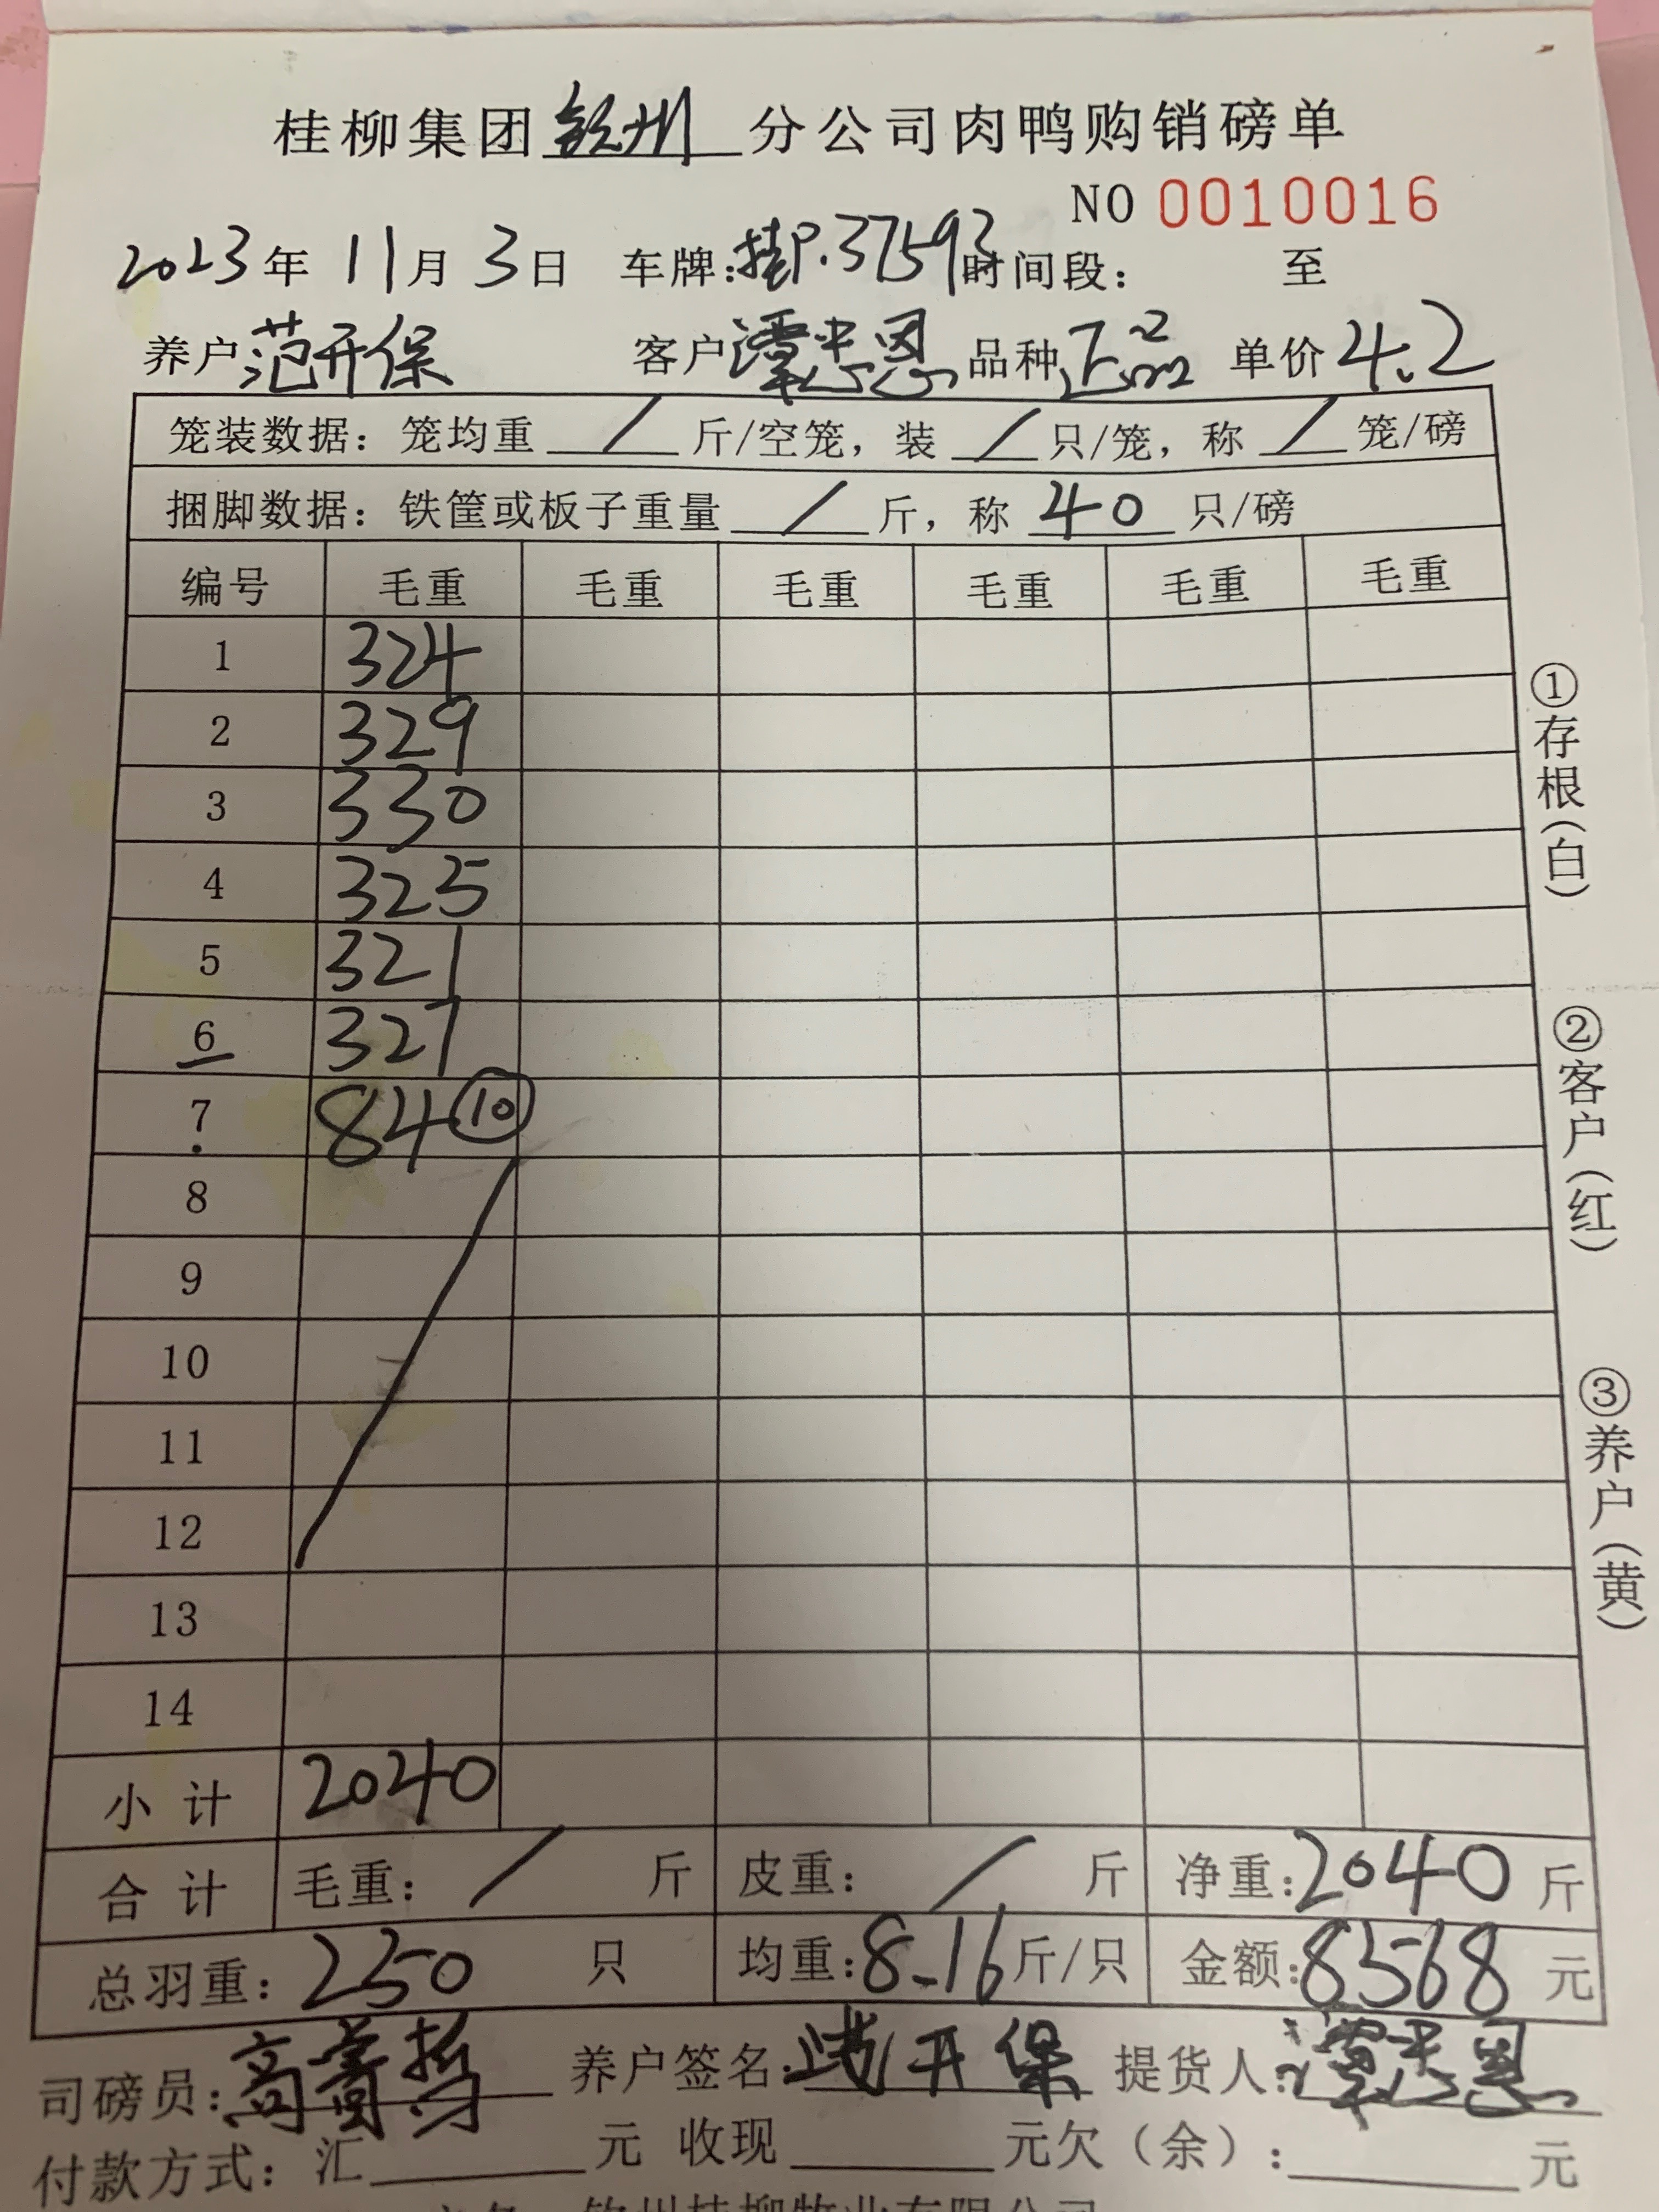 桂柳集团 钦州 分公司肉鸭购销磅单
NO 0010016
2023年 11月 3日 车牌:桂P.37593 时间段: 至
养户 范开保 客户 谭忠恩 品种 正品 单价 4.2
笼装数据: 笼均重 / 斤/空笼, 装 / 只/笼, 称 / 笼/磅
捆脚数据: 铁筐或板子重量 / 斤, 称 40 只/磅
编号 毛重 毛重 毛重 毛重 毛重 毛重
1 324
2 329
3 330
4 325
5 321
6 327
7 84 ⑩
8
9
10
11
12
13
14
小计 2040
合计 毛重: / 斤 皮重: / 斤 净重: 2040 斤
总羽重: 250 只 均重: 8.16 斤/只 金额: 8568 元
司磅员: 高 养户签名: 范开保 提货人: 谭忠恩
付款方式: 汇 元 收现 元欠(余): 元
钦州桂柳牧业有限公司
①存根(白)
②客户(红)
③养户(黄)